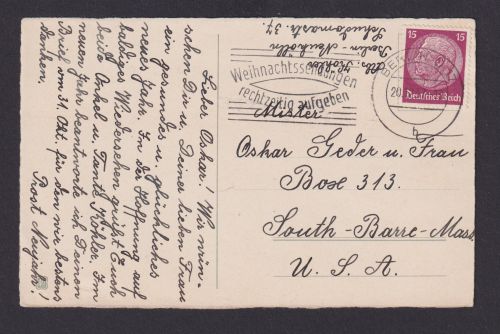 Lieber Oskar! Wir wün-
schen Dir u. Deiner lieben Frau
ein gesundes u. glückliches
neues Jahr. In der Hoffnung auf
baldiges Wiedersehen grüßt Euch
beide Onkel u. Tante Köhler. Im
neuen Jahr beantworte ich Deinen
Brief vom 31. Okt. für den wir bestens
danken.
Prost Neujahr!
Abs. Köhler
Berlin-Neukölln
37.
Weihnachtssendungen
rechtzeitig aufgeben
15 15
Deutsches Reich
20
b
Mister
Oskar Geder u. Frau
Box 313.
South-Barre-Mass.
U. S. A.